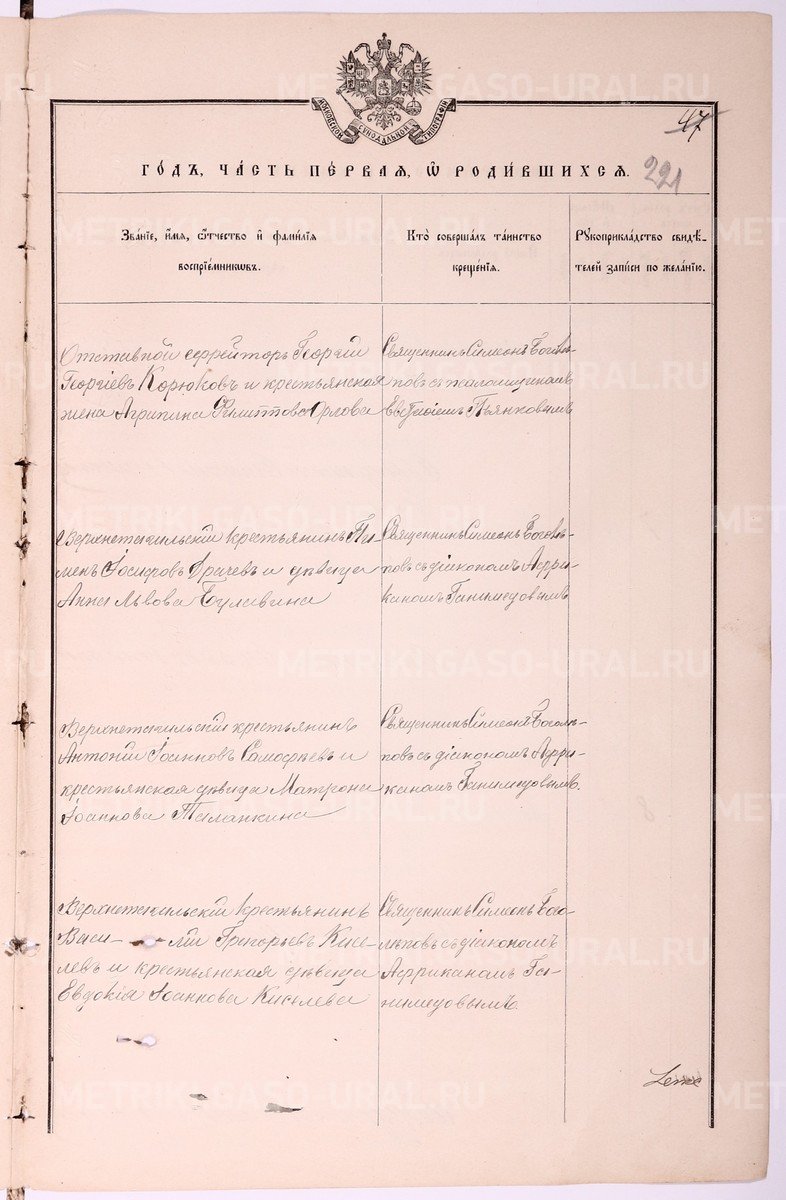 МОСКОВСКОЙ СѴНОДАЛЬНОЙ ТИПОГРАФІИ
47
ГО́ДЪ, ЧА́СТЬ ПЕ́РВАЯ, Ѡ҆ РОДИ́ВШИХСѦ.
221
Зва́нїе, и҆́мѧ, ѻ҆́тчество и҆ фами́лїѧ
воспрїе́мникѡвъ.
Кто̀ соверша́лъ та́инство
креще́нїѧ.
Рꙋкоприкла́дство свидѣ́-
телей за́писи по жела́нїю.
Отставной ефрейторъ Георгій
Георгіевъ Корюковъ и крестьянская
жена Агрипина Филиппова Орлова
Священникъ Симеонъ Боголѣ-
повъ съ псаломщикомъ
Евѳиміемъ Пьянковымъ
Верхнетагильскій крестьянинъ Пи-
менъ Іосифовъ Драчевъ и дѣвица
Анна Львова Булавина
Священникъ Симеонъ Боголѣ-
повъ съ діакономъ Афри-
каномъ Ганимедовымъ
Верхнетагильскій крестьянинъ
Антоній Іоанновъ Самофѣевъ и
крестьянская дѣвица Матрона
Іоаннова Таланкина
Священникъ Симеонъ Боголѣ-
повъ съ діакономъ Афри-
каномъ Ганимедовымъ.
Верхнетагильскій крестьянинъ
Васи- лій Григорьевъ Кисе-
левъ и крестьянская дѣвица
Евдокія Іоаннова Киселева
Священникъ Симеонъ Бого-
лѣповъ съ діакономъ
Африканомъ Га-
нимедовымъ.
METRIKI.GASO-URAL.RU